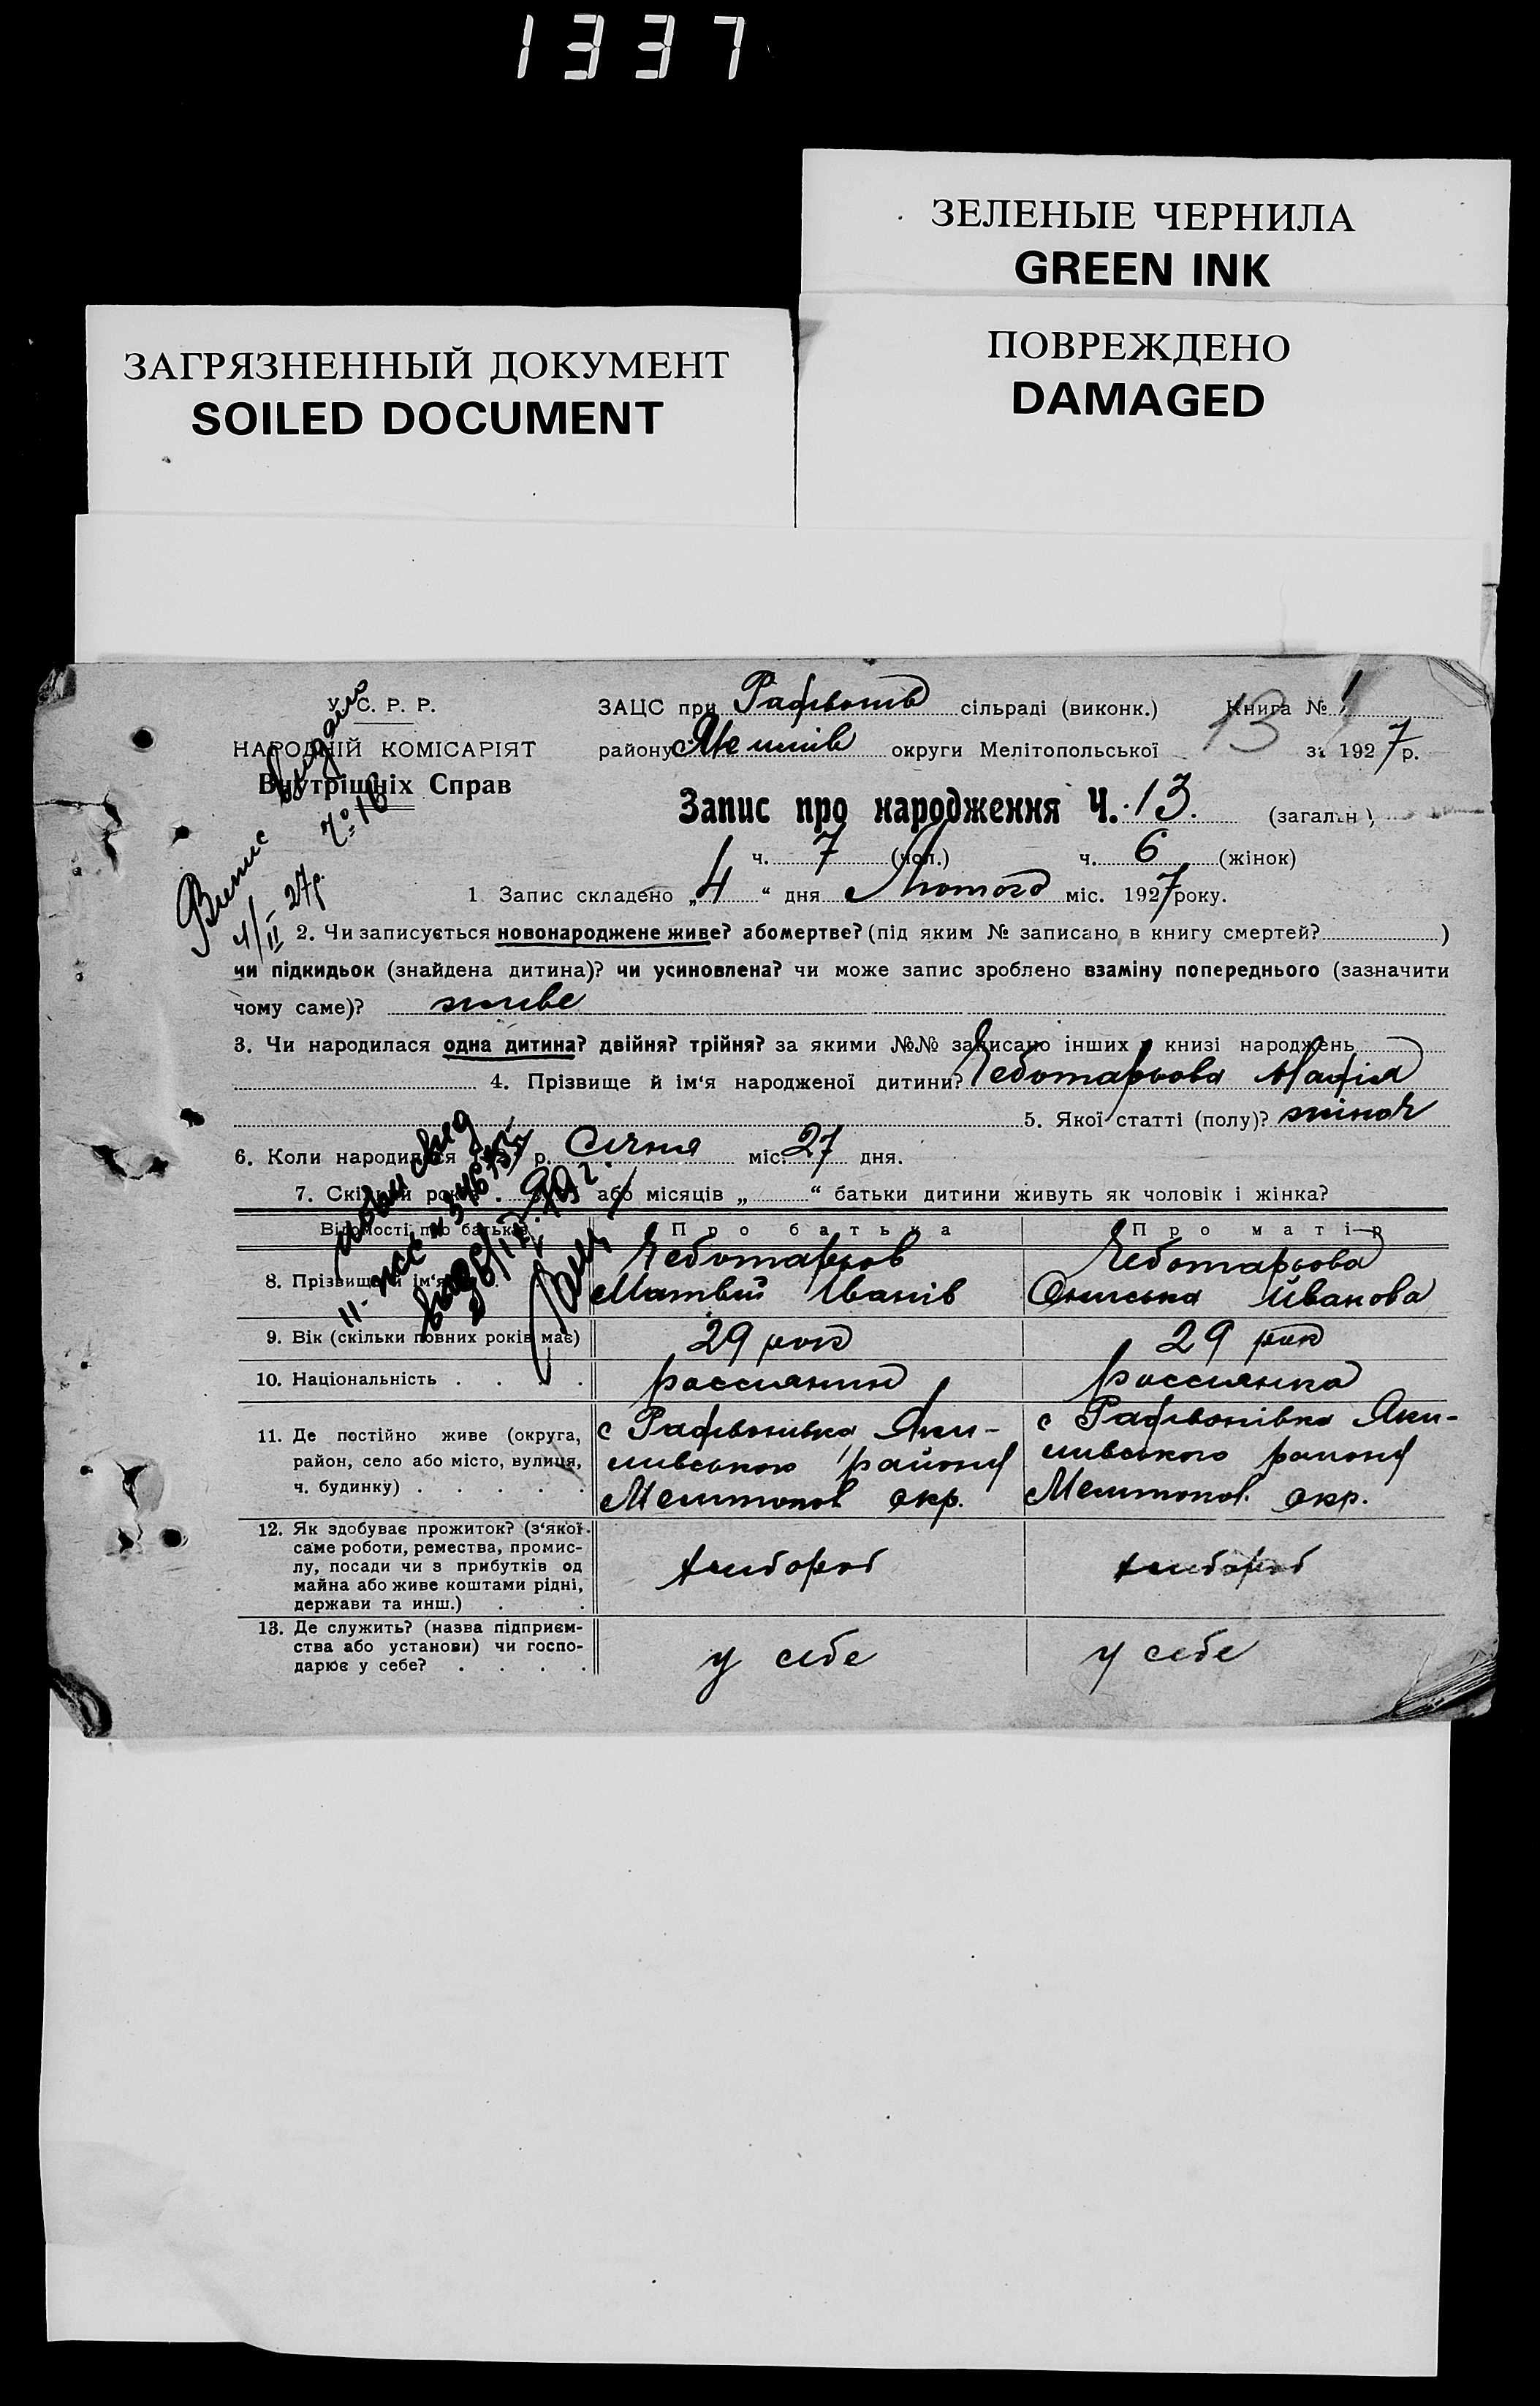 1337
ЗЕЛЕНЫЕ ЧЕРНИЛА
GREEN INK
ПОВРЕЖДЕНО
DAMAGED
ЗАГРЯЗНЕННЫЙ ДОКУМЕНТ
SOILED DOCUMENT
У. С. Р. Р.
НАРОДНІЙ КОМІСАРІЯТ
Внутрішніх Справ
ЗАЦС при сільраді (виконк.) Книга № 1
району округи Мелітопольської 13 за 1927 р.
Запис про народження Ч. 13. (загальн.)
ч. 7 (чол.) ч. 6 (жінок)
Випис видано
4/II 27р. № 16
1 Запис складено „4“ дня Лютого міс. 1927 року.
2. Чи записується новонароджене живе? або мертве? (під яким № записано в книгу смертей? )
чи підкидьок (знайдена дитина)? чи усиновлена? чи може запис зроблено взаміну попереднього (зазначити
чому саме)? живе
3. Чи народилася одна дитина? двійня? трійня? за якими №№ записано інших у книзі народжень
4. Прізвище й ім‘я народженої дитини? Чеботарьова Марія
5. Якої статті (полу)? жіноч
6. Коли народилася р. Січня міс. 27 дня.
7. Скільки років або місяців „ “ батьки дитини живуть як чоловік і жінка?
Відомості про батьків Про батька Про матір
8. Прізвище й ім‘я Чеботарьов Матвій Іванів Чеботарьова Ониська Иванова
9. Вік (скільки повних років має) 29 рок 29 рок
10. Національність . . . . россиянин россиянка
11. Де постійно живе (округа,
район, село або місто, вулиця,
ч. будинку) . . . . .
с Яки-
мивського району
Мелитопол окр.
с Яки-
мивського району
Мелитопол. окр.
12. Як здобуває прожиток? (з‘якої
саме роботи, ремества, промис-
лу, посади чи з прибутків од
майна або живе коштами рідні,
держави та инш.) . .
хлибороб хлибороб
13. Де служить? (назва підприєм-
ства або установи) чи госпо-
дарює у себе? . . . .
у себе у себе